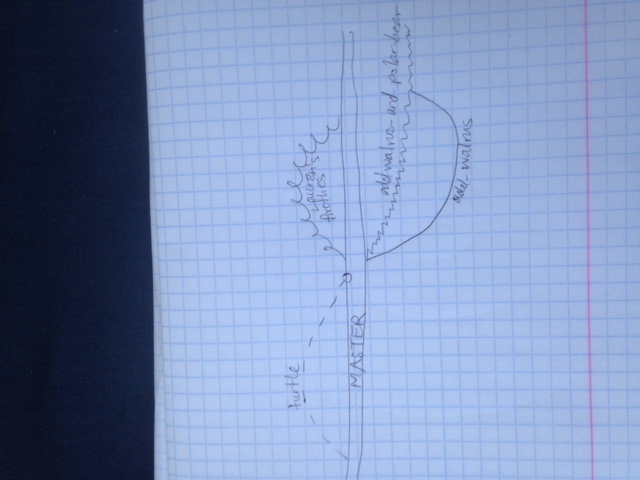 turtle
Lauren's
fireflies
MASTER
add walrus-and-polar-bear
add-walrus